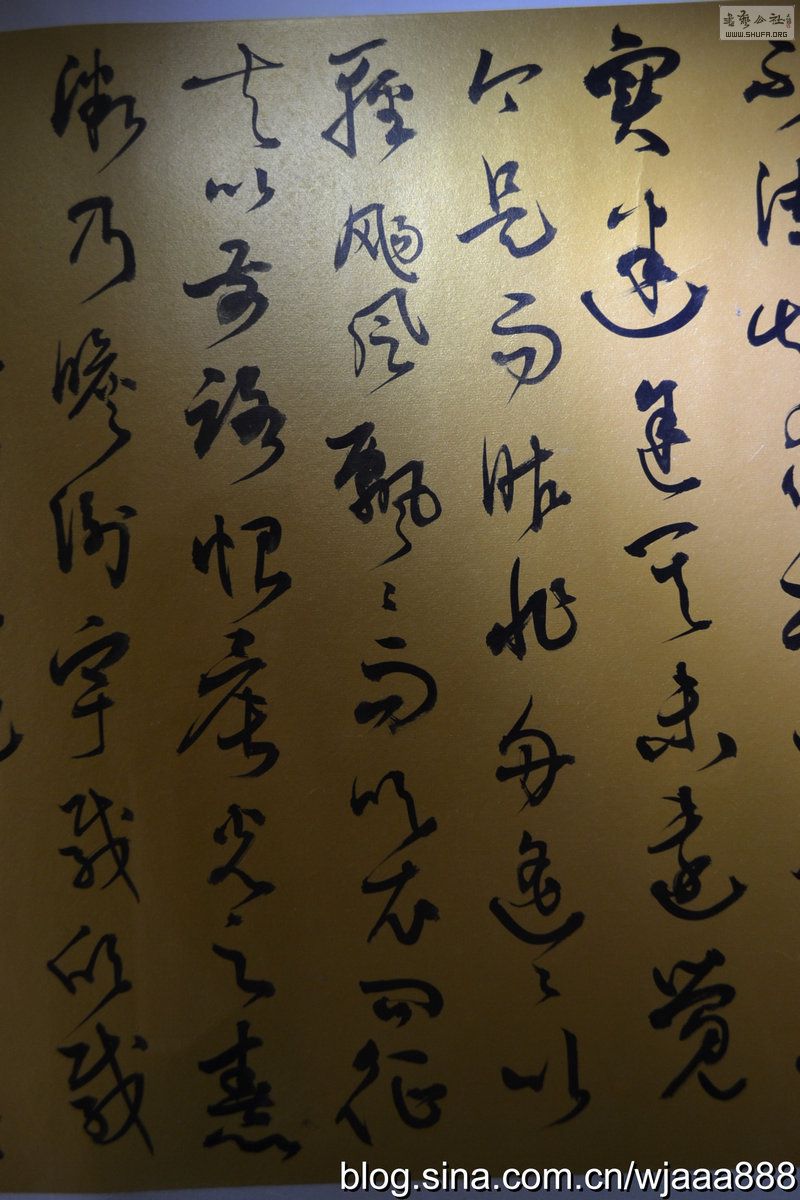 書藝公社
WWW.SHUFA.ORG
實迷途其未遠覺
今是而昨非舟遥々以
輕颺風飄々而吹衣問征
夫以前路恨晨光之熹
微乃瞻衡宇載欣載
blog.sina.com.cn/wjaaa888